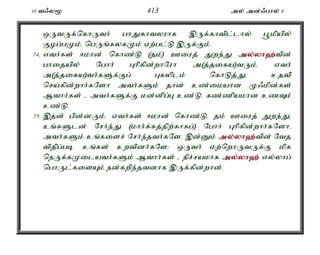 10 வஃலமூ 413 அல் அன்ஃபால் 8
ஒருவருக்கொருவர் பாதுகாவலராக இருக்காவிட்டால் பூமியில்
குழப்பமும், பெருங்கலகமும் ஏற்பட்டு இருக்கும்.
74. எவர்கள் ஈமான் கொண்டு (தம்) ஊரைத் துறந்து அல்லாஹ்வின்
பாதையில் போர் புரிகின்றாரோ அ(த்தகைய)வரும், எவர்
அ(த்தகைய)வர்களுக்குப் புகலிடம் கொடுத்து, உதவி
செய்கின்றார்களோ அவர்களும் தான் உண்மையான முஃமின்கள்
ஆவார்கள் - அவர்களுக்கு மன்னிப்பு உண்டு. கண்ணியமான உணவும்
உண்டு.
75. இதன் பின்னரும், எவர்கள் ஈமான் கொண்டு, தம் ஊரைத் துறந்து,
உங்களுடன் சேர்ந்து (மார்க்கத்திற்காகப்) போர் புரிகின்றார்களோ,
அவர்களும் உங்களைச் சேர்ந்தவர்களே. இன்னும் அல்லாஹ்வின் வேத
விதிப்படி உங்கள் உறவினர்களே; ஒருவர் மற்றொருவருக்கு மிக
நெருக்கமுடையவர்களும் ஆவார்கள் - நிச்சயமாக அல்லாஹ் எல்லாப்
பொருட்களையும் நன்கறிந்தவனாக இருக்கின்றான்.